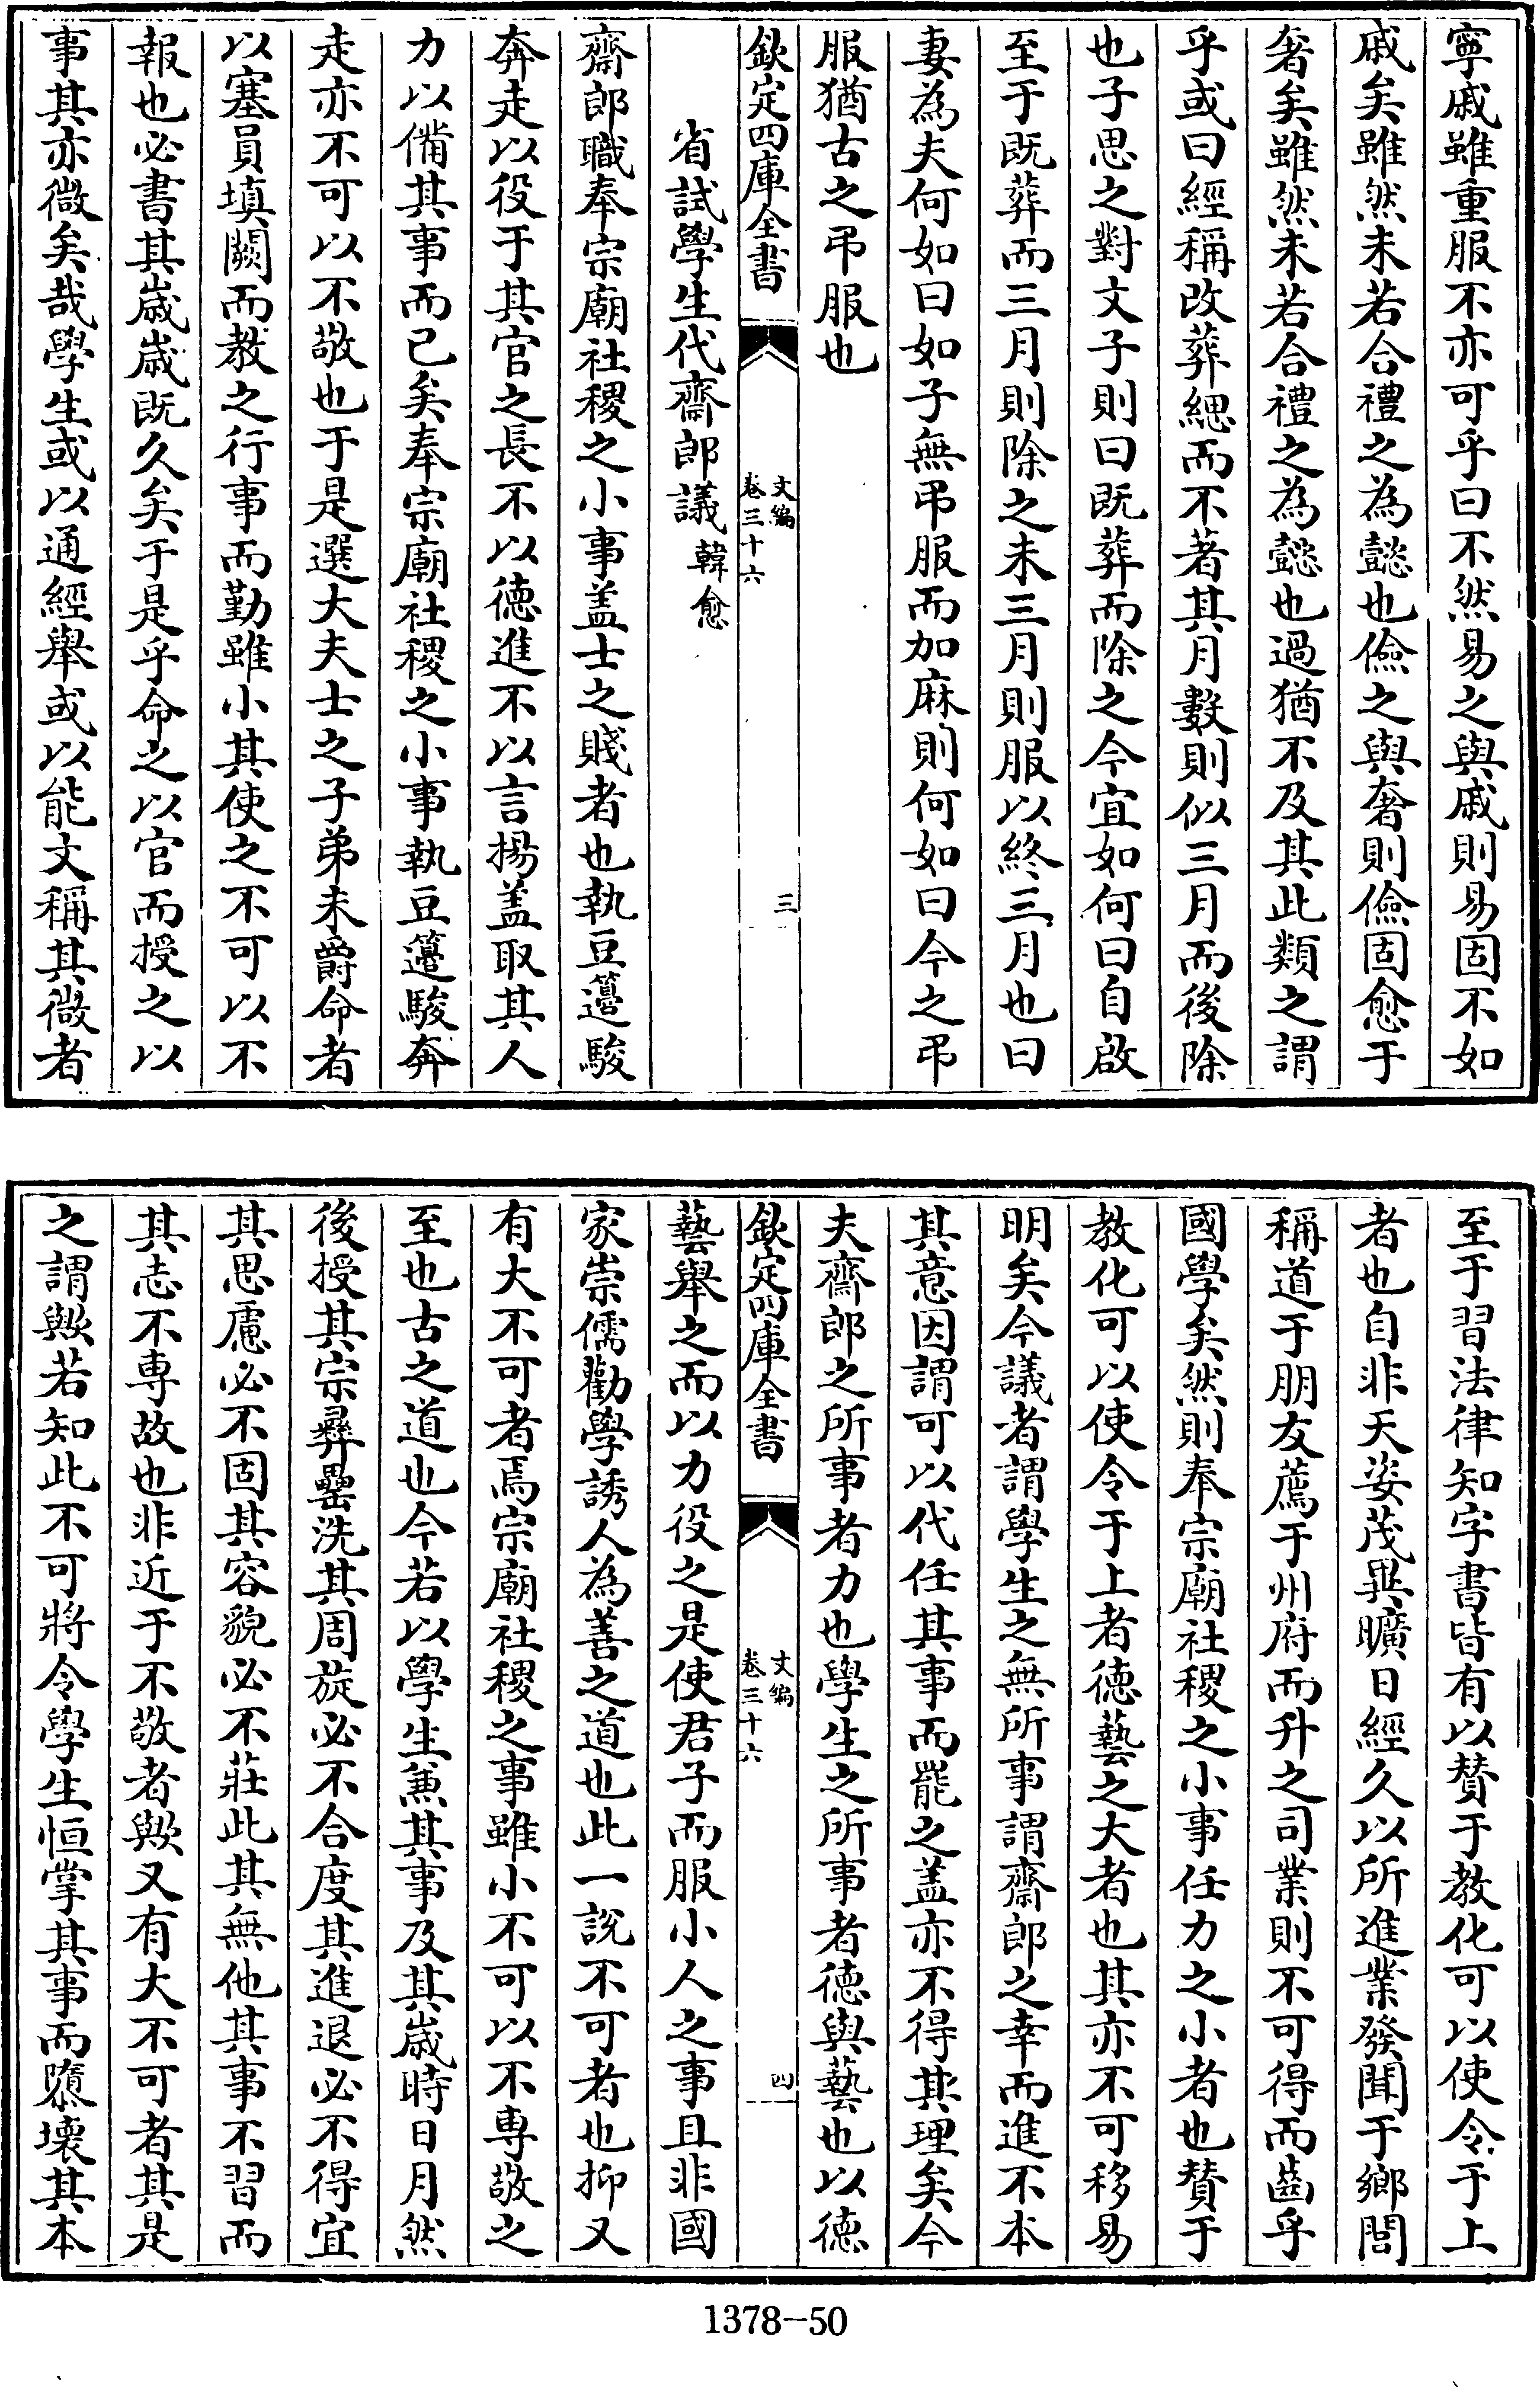 寧戚雖重服不亦可乎曰不然易之與戚則易固不如
戚矣雖然未若合禮之為懿也儉之與奢則儉固愈于
奢矣雖然未若合禮之為懿也過猶不及其此類之謂
乎或曰經稱改葬緦而不著其月數則似三月而後除
也子思之對文子則曰既葬而除之今宜如何曰自啟
至于既葬而三月則除之未三月則服以終三月也曰
妻為夫何如曰如子無弔服而加麻則何如曰今之弔
服猶古之弔服也
欽定四庫全書
文編
卷三十六
三
省試學生代齋郎議韓愈
齋郎職奉宗廟社稷之小事盖士之賤者也執豆籩駿
奔走以役于其官之長不以德進不以言揚盖取其人
力以備其事而已矣奉宗廟社稷之小事執豆籩駿奔
走亦不可以不敬也于是選大夫士之子弟未爵命者
以塞員填闕而教之行事而勤雖小其使之不可以不
報也必書其歲歲既久矣于是乎命之以官而授之以
事其亦微矣哉學生或以通經舉或以能文稱其微者
至于習法律知字書皆有以賛于教化可以使令于上
者也自非天姿茂異曠日經久以所進業發聞于鄉閭
稱道于朋友薦于州府而升之司業則不可得而齒乎
國學矣然則奉宗廟社稷之小事任力之小者也賛于
教化可以使令于上者德藝之大者也其亦不可移易
明矣今議者謂學生之無所事謂齋郎之幸而進不本
其意因謂可以代任其事而罷之盖亦不得其理矣今
夫齋郎之所事者力也學生之所事者德與藝也以德
欽定四庫全書
文編
卷三十六
四
藝舉之而以力役之是使君子而服小人之事且非國
家崇儒勸學誘人為善之道也此一說不可者也抑又
有大不可者焉宗廟社稷之事雖小不可以不專敬之
至也古之道也今若以學生兼其事及其歲時日月然
後授其宗彞罍洗其周旋必不合度其進退必不得宜
其思慮必不固其容貌必不莊此其無他其事不習而
其志不専故也非近于不敬者歟又有大不可者其是
之謂歟若知此不可將令學生恒掌其事而隳壊其本
1378-50